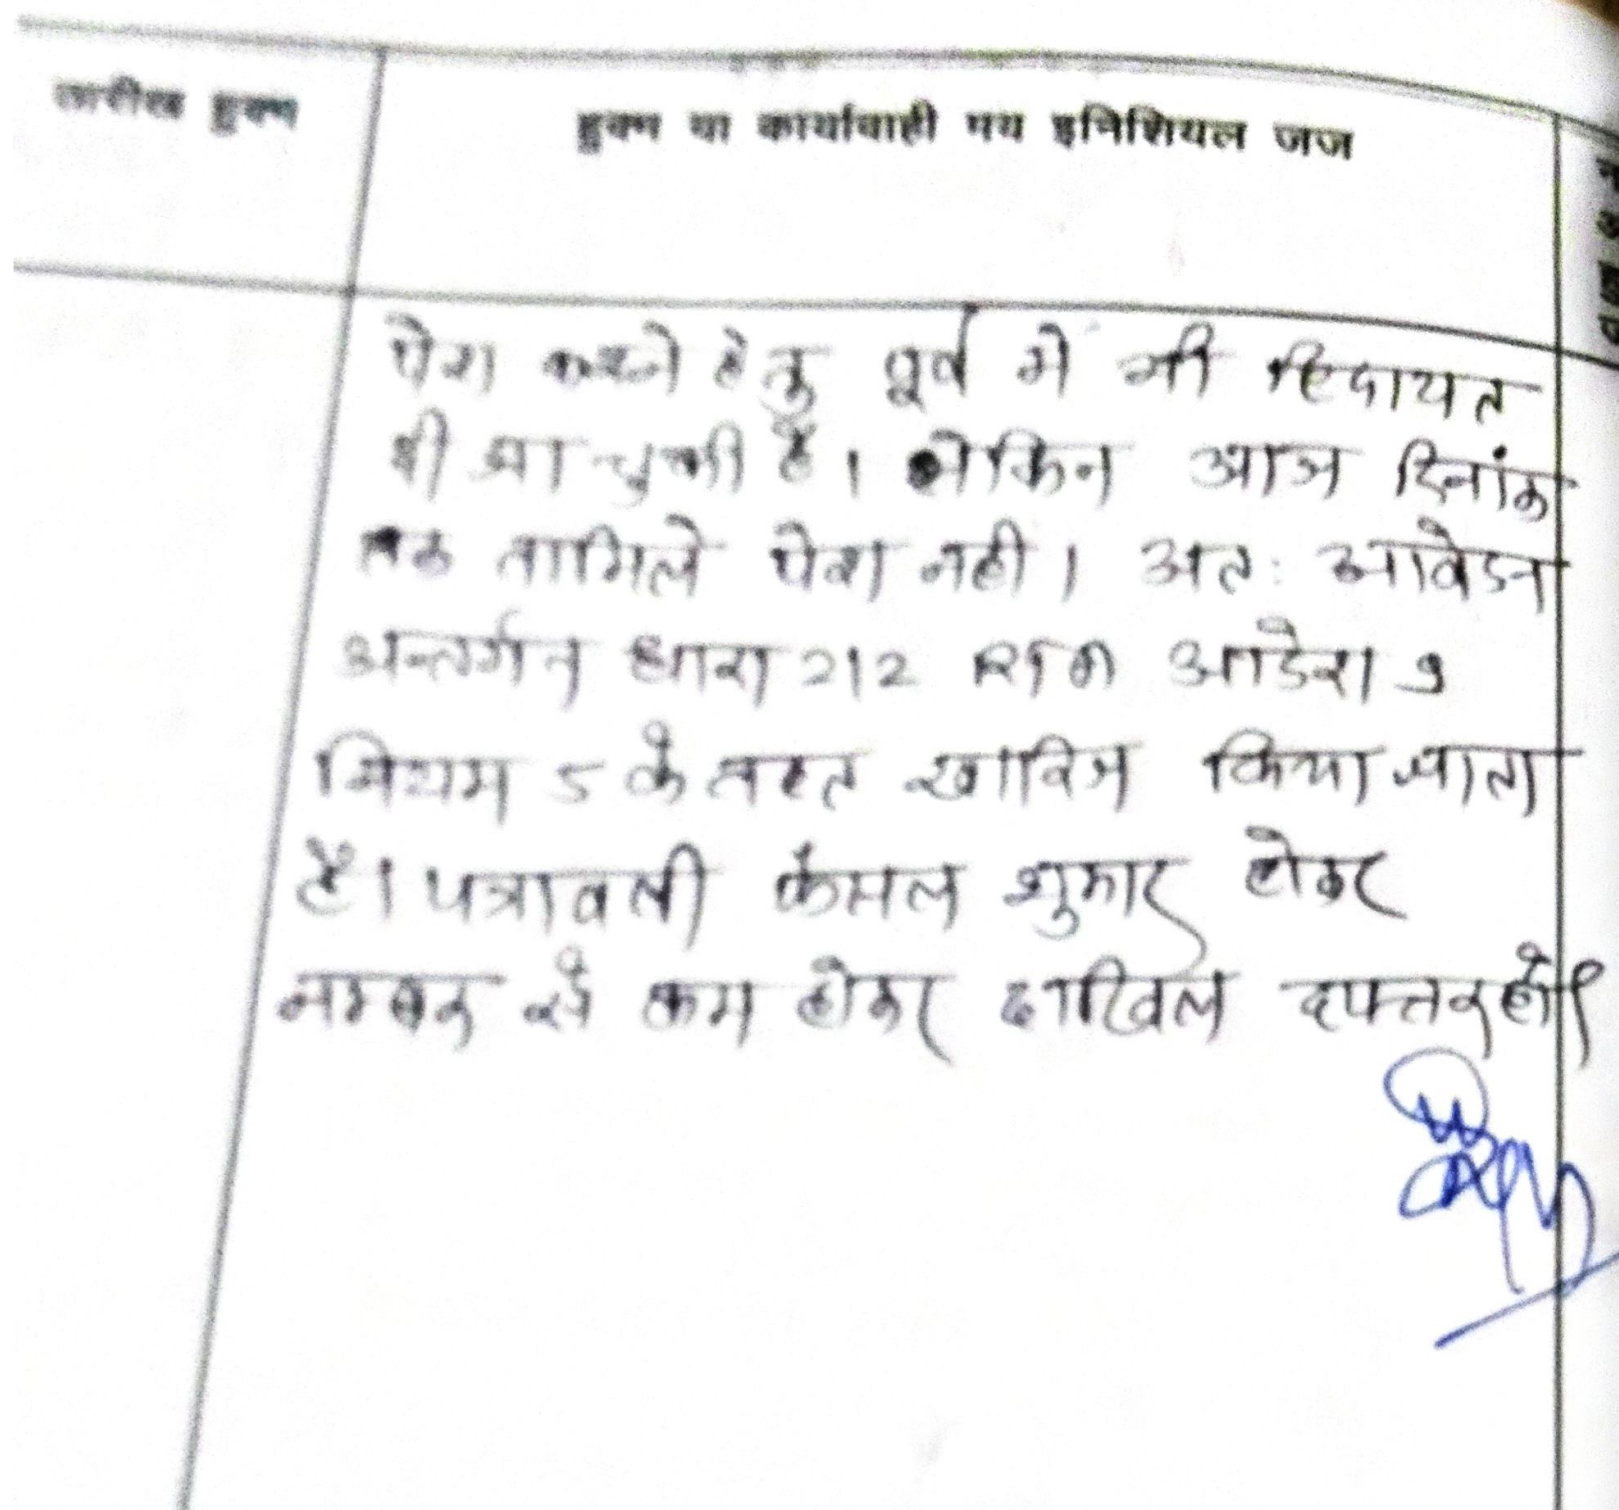 तारीख हुक्म
हुक्म या कार्यावाही मय इनिशियल जज
पेश करने हेतु पूर्व मे भी हिदायत
दी जा चुकी है। लेकिन आज दिनांक
तक तामिले पेश नही। अतः आवेदन
अन्तर्गत धारा 212 RTA आदेश 9
नियम 5 के तहत खारिज किया जाता
है। पत्रावली फैसल शुमार होकर
नम्बर से कम होकर दाखिल दफ्तर हो।